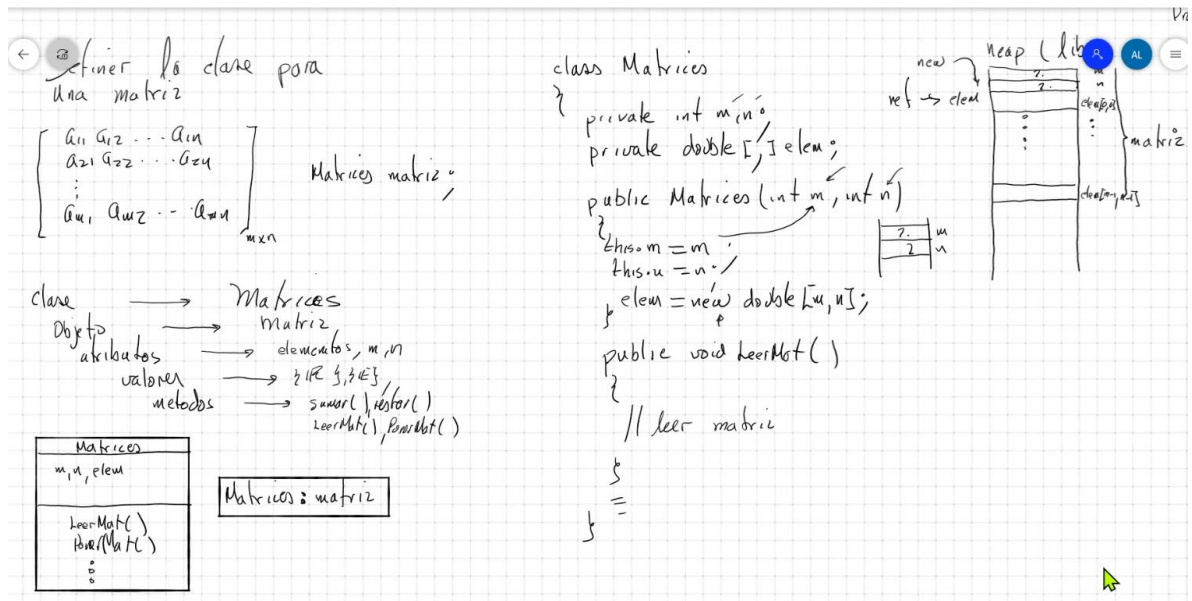 Definer la clase para
una matriz
a11 a12 ... a1n
a21 a22 ... a2n
⋮
am1 am2 ... amn
mxn
Matrices matriz;
clase → Matrices
Objeto → matriz
atributos → elementos, m, n
valores → {ℝ}, {∈}
metodos → sumar(), restar()
LeerMat(), PonerMat()
Matrices
m, n, elem
LeerMat()
PonerMat()
⋮
Matrices : matriz
class Matrices
{
private int m, n;
private double [,] elem;
public Matrices (int m, int n)
{
this.m = m;
this.n = n;
elem = new double [m, n];
}
public void LeerMat()
{
// leer matriz
}
}
? m
? n
new
heap (lib
ref → elem
? m
? n
elem[0,0]
⋮
matriz
elem[m-1, n-1]
AL